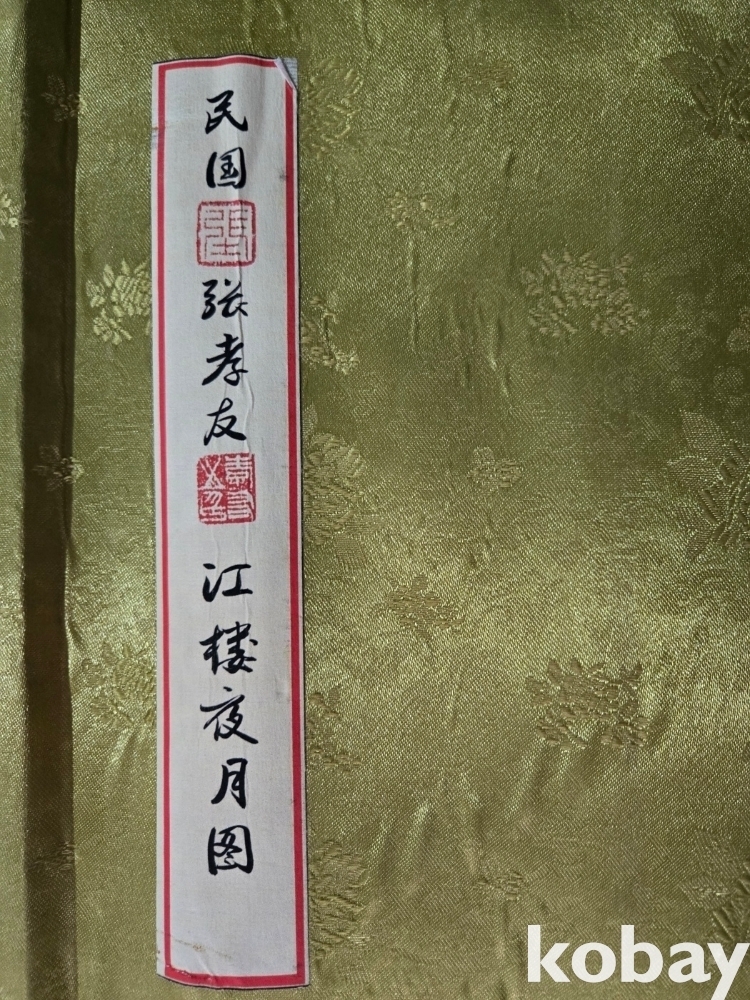 民国
张孝友
江楼夜月图
kobay